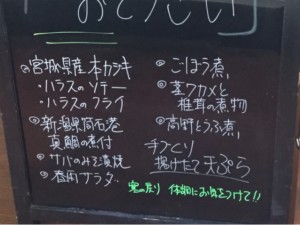 おとうさい
宮城県産本カジキ
・ハラスのソテー
・ハラスのフライ
新潟県筒石港
真鯛の煮付
サバのみそ漬焼
春雨サラダ
ごぼう煮
茎ワカメと
椎茸の煮物
高野とうふ煮
手づくり
揚げたて天ぷら
寒の戻り 体調にお気をつけて!!